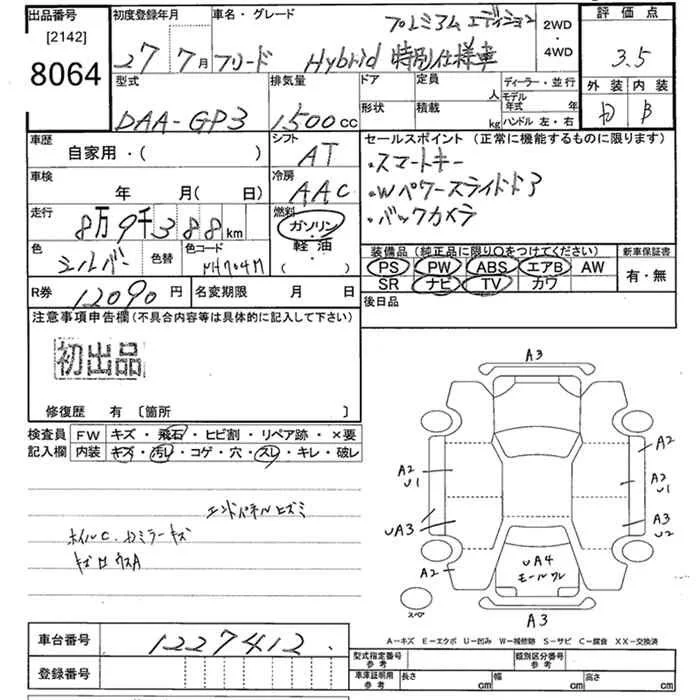 出品番号
[2142]
8064
初度登録年月
27 7月
車名・グレード
フリード Hybrid 特別仕様車
プレミアム エディション
2WD
・
4WD
評価点
3.5
外装 内装
B
型式
DAA-GP3
排気量
1500cc
ドア 定員 人
形状 積載 kg
ディーラー・並行
モデル年式 年
ハンドル 左・右
車歴
自家用・( )
シフト
AT
車検
年 月( 日)
冷房
AAC
走行
8万9千388km
燃料
ガソリン
・
軽油
( )
色
シルバー
色替
色コード
NH704M
セールスポイント(正常に機能するものに限ります)
・スマートキー
・Wパワースライドドア
・バックカメラ
装備品(純正品に限り○をつけてください)
PS PW ABS エアB AW
SR ナビ TV カワ
新車保証書
有・無
後日品
R券 12090円
名変期限 月 日
注意事項申告欄(不具合内容等は具体的に記入して下さい)
初出品
修復歴 有 〔箇所 〕
検査員記入欄
FW キズ・飛石・ヒビ割・リペア跡・×要
内装 キズ・汚レ・コゲ・穴・スレ・キレ・破レ
エンドパネルヒズミ
ホイルC.
ミラーキズ
A3
A2
A2
U1
A2
U1
UA3
A3
U2
A2
UA4
モールワレ
スペア
A3
A-キズ E-エクボ U-凹み W-補修跡 S-サビ C-腐食 XX-交換済
車台番号 1227412.
登録番号
型式指定番号
参考
類別区分番号
参考
車庫証明用
参考
長さ cm 幅 cm 高さ cm